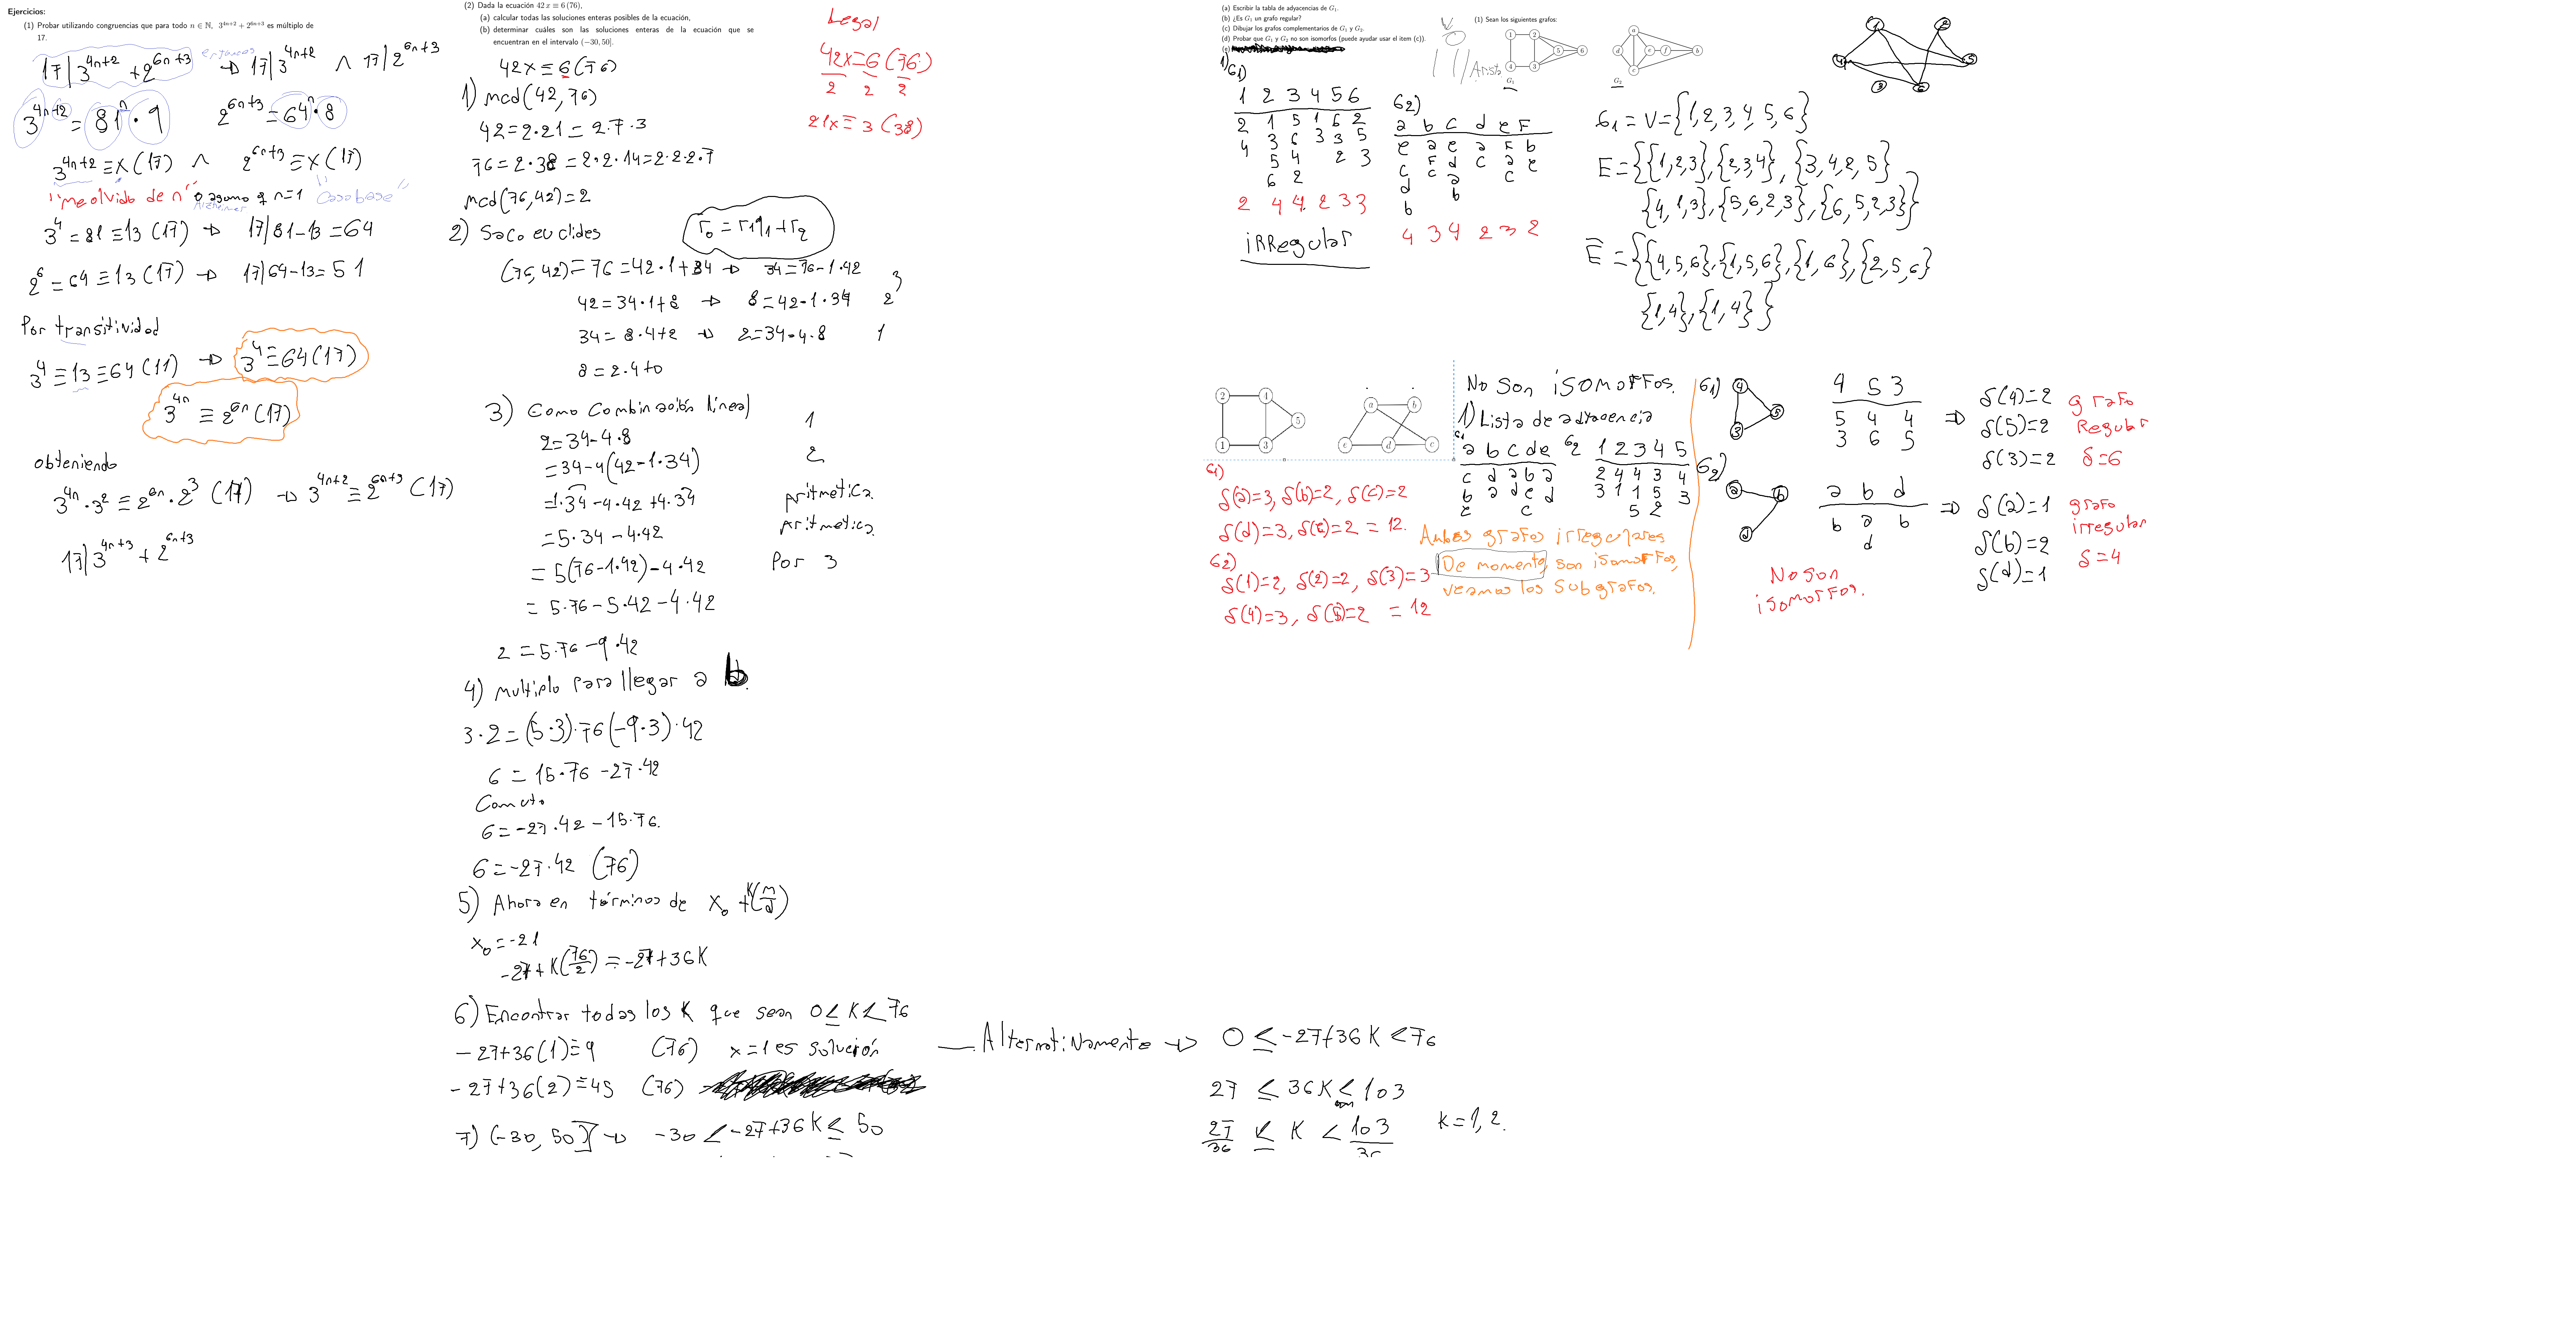 Ejercicios:
(1) Probar utilizando congruencias que para todo n ∈ ℕ, 3^{4n+2} + 2^{6n+3} es múltiplo de
17.
17|3^{4n+2} + 2^{6n+3} entonces → 17|3^{4n+2} ∧ 17|2^{6n+3}
3^{4n+2} = 81^n · 9 2^{6n+3} = 64^n · 8
3^{4n+2} ≡ x (17) ∧ 2^{6n+3} ≡ x (17)
"me olvido de n" o asumo q n=1 "Caso base"
3^4 = 81 ≡ 13 (17) → 17|81-13 = 64
2^6 = 64 ≡ 13 (17) → 17|64-13 = 51
Por transitividad
3^4 ≡ 13 ≡ 64 (17) → 3^4 ≡ 64 (17)
3^{4n} ≡ 2^{6n} (17)
obteniendo
3^{4n} · 3^2 ≡ 2^{6n} · 2^3 (17) → 3^{4n+2} ≡ 2^{6n+3} (17)
17|3^{4n+3} + 2^{6n+3}
(2) Dada la ecuación 42 x ≡ 6 (76),
(a) calcular todas las soluciones enteras posibles de la ecuación,
(b) determinar cuáles son las soluciones enteras de la ecuación que se
encuentran en el intervalo (−30, 50].
42x ≡ 6 (76)
1) mcd(42, 76)
42 = 2·21 = 2·7·3
76 = 2·38 = 2·2·14 = 2·2·2·7
mcd(76, 42) = 2
Legal
42x ≡ 6 (76)
2 2 2
21x ≡ 3 (38)
2) Saco euclides
r0 = r1q1 + r2
(76, 42) = 76 = 42·1+34 → 34 = 76-1·42 3
42 = 34·1+8 → 8 = 42-1·34 2
34 = 8·4+2 → 2 = 34-4·8 1
8 = 2·4+0
3) Como Combinación lineal
2 = 34-4·8 1
= 34-4(42-1·34) 2
= 1·34-4·42+4·34 aritmetica.
= 5·34-4·42 aritmetica.
= 5(76-1·42)-4·42 Por 3
= 5·76-5·42-4·42
2 = 5·76-9·42
4) multiplo para llegar a b.
3·2 = (5·3)·76(-9·3)·42
6 = 15·76-27·42
Conmuto
6 = -27·42-15·76.
6 = -27·42 (76)
5) Ahora en términos de x0 + k(m/d)
x0 = -21
-27+k(76/2) = -27+36K
6) Encontrar todas los K que sean 0 ≤ K < 76
-27+36(1) ≡ 9 (76) x=1 es solución
-27+36(2) ≡ 45 (76)
7) (-30, 50] → -30 < -27+36K ≤ 50
Alternativamente → 0 ≤ -27+36K < 76
27 ≤ 36K ≤ 103
27/36 ≤ K < 103/36 K = 1, 2.
(a) Escribir la tabla de adyacencias de G1.
(b) ¿Es G1 un grafo regular?
(c) Dibujar los grafos complementarios de G1 y G2.
(d) Probar que G1 y G2 no son isomorfos (puede ayudar usar el item (c)).
(e)
(1) Sean los siguientes grafos:
1 2 5 6 4 3
G1
a d e f b c
G2
1)
G1)
1 2 3 4 5 6
2 1 5 1 6 2
4 3 6 3 3 5
5 4 2 3
6 2
2 4 4 2 3 3
irregular
G2)
a b c d e F
e a e a F b
c F d c a e
d c a c
b b
4 3 4 2 3 2
G1 = V = {1, 2, 3, 4, 5, 6}
E = {{1,2,3}, {2,3,4}, {3,4,2,5}
{4,1,3}, {5,6,2,3}, {6,5,2,3}}
E̅ = {{4,5,6}, {1,5,6}, {1,6}, {2,5,6}
{1,4}, {1,4}}
2 4 5 1 3
a b c d e
No son isomorfos.
1) Lista de adyacencia
G1
a b c d e
c d a b a
b a d e d
e c
G2
1 2 3 4 5
2 4 4 3 4
3 1 1 5 3
5 2
G1)
δ(a)=3, δ(b)=2, δ(c)=2
δ(d)=3, δ(e)=2 = 12.
G2)
δ(1)=2, δ(2)=2, δ(3)=3
δ(4)=3, δ(5)=2 = 12
Ambos grafos irregulares
De momento, son isomorfos,
veamos los Subgrafos.
G1) 4 5 3
4 5 3
5 4 4
3 6 5
⇒ δ(4)=2
δ(5)=2
δ(3)=2
grafo
Regular
δ=6
G2) a b d
a b d
b a b
d
⇒ δ(a)=1
δ(b)=2
δ(d)=1
grafo
irregular
δ=4
No son
isomorfos.